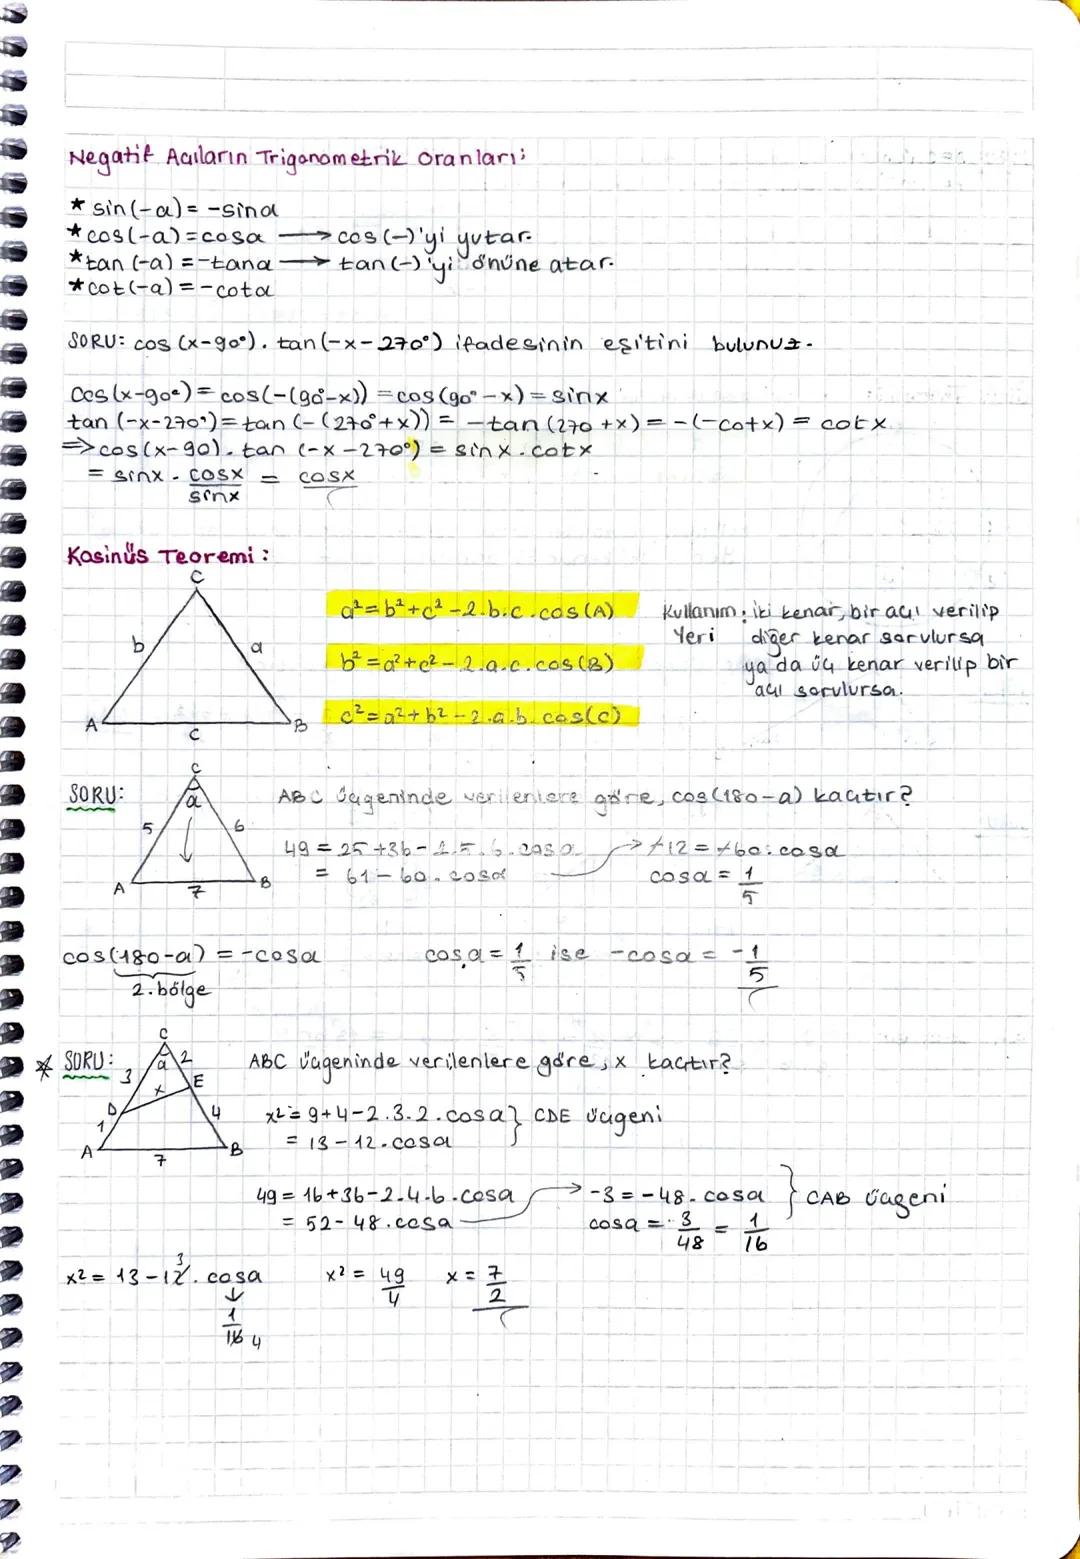 Negatif Açıların Trigonometrik Oranları:
* sin(-a) = -sina
* cos(-a) = cosa → cos (-)'yi yutar.
* tan (-a) = -tana → tan (-)'yi önüne atar.
* cot(-a) = -cota
SORU: cos (x-90°). tan(-x-270°) ifadesinin eşitini bulunuz.
cos(x-90°) = cos(-(90°-x)) = cos(90°-x) = sinx
tan (-x-270°) = tan (-(270°+x)) = -tan (270+x) = -(-cotx) = cotx
⇒ cos(x-90). tan (-x-270°) = sinx.cotx
= sinx . cosx/sinx = cosx
Kosinüs Teoremi:
C
b a
A B
c
a² = b²+c²-2.b.c.cos(A)
b² = a²+c²-2.a.c.cos(B)
c² = a²+b²-2.a.b.cos(C)
Kullanım Yeri : iki kenar, bir açı verilip
diğer kenar sorulursa
ya da üç kenar verilip bir
açı sorulursa.
SORU:
C
a
5 6
A 7 B
ABC üçgeninde verilenlere göre, cos(180-a) kaçtır?
49 = 25+36-2.5.6.cosa → -12 = -60.cosa
= 61-60.cosa cosa = 1/5
cos(180-a) = -cosa cosa = 1/5 ise -cosa = -1/5
2.bölge
* SORU:
C
a
3 2
x E
D 4
1
A 7 B
ABC üçgeninde verilenlere göre, x kaçtır?
x² = 9+4-2.3.2.cosa } CDE üçgeni
= 13-12.cosa
49 = 16+36-2.4.6.cosa → -3 = -48.cosa } CAB üçgeni
= 52-48.cosa cosa = 3/48 = 1/16
x² = 13-12.cosa x² = 49/4 x = 7/2
3
↓
1/16 4